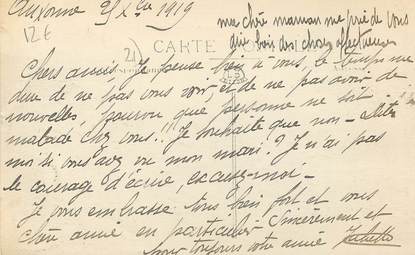 Auxonne 25 Xbre 1919
ma chère maman me prie de vous
dire bien des choses affectueuses
126
21
CARTE
Chers amis. Je pense bien à vous, le temps me
dure de ne pas vous voir, et de ne pas avoir de
nouvelles, pourvu que personne ne soit
malade chez vous!! Je souhaite que non - dites
moi si vous avez vu mon mari? Je n'ai pas
le courage d'écrire, excusez-moi -
Je vous embrasse tous bien fort et vous
chère amie en particulier. Sincèrement et
pour toujours votre amie Juliette